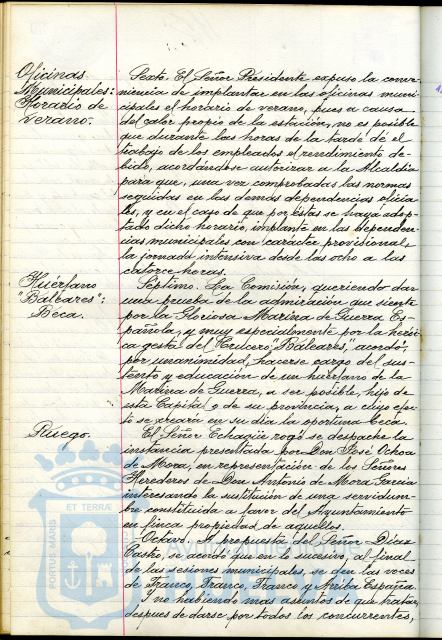 Oficinas
Municipales:
Horario de
Verano.
Sexto. El Señor Presidente expuso la conve-
niencia de implantar en las oficinas muni-
cipales el horario de verano, pues a causa
del calor propio de la estación, no es posible
que durante las horas de la tarde dé el
trabajo de los empleados el rendimiento de-
bido, acordándose autorizar a la Alcaldía
para que, una vez comprobadas las normas
seguidas en las demás dependencias oficia-
les, y en el caso de que por éstas se haya adop-
tado dicho horario, implante en las dependen-
cias municipales con carácter provisional,
la jornada intensiva desde las ocho a las
catorce horas.
Huérfano
"Baleares":
Beca.
Séptimo. La Comisión, queriendo dar
una prueba de la admiración que siente
por la Gloriosa Marina de Guerra Es-
pañola, y muy especialmente por la herói-
ca gesta del Crucero "Baleares", acordó,
por unanimidad, hacerse cargo del sus-
tento y educación de un huérfano de la
Marina de Guerra, a ser posible, hijo de
esta Capital y de su provincia, a cuyo efec-
to se creará en su día la oportuna Beca.
Ruego.
El Señor Echagüe rogó se despache la
instancia presentada por Don José Ochoa
de Mora, en representación de los Señores
Herederos de Don Antonio de Mora García
interesando la sustitución de una servidum-
bre constituida a favor del Ayuntamiento
en finca propiedad de aquellos.
Octavo. A propuesta del Señor Díaz
Castro, se acordó que en lo sucesivo, al final
de las sesiones municipales, se den las voces
de Franco, Franco, Franco y Arriba España.
Y no habiendo más asuntos de que tratar,
después de darse por todos los concurrentes,
PORTUS MARIS
ET TERRÆ